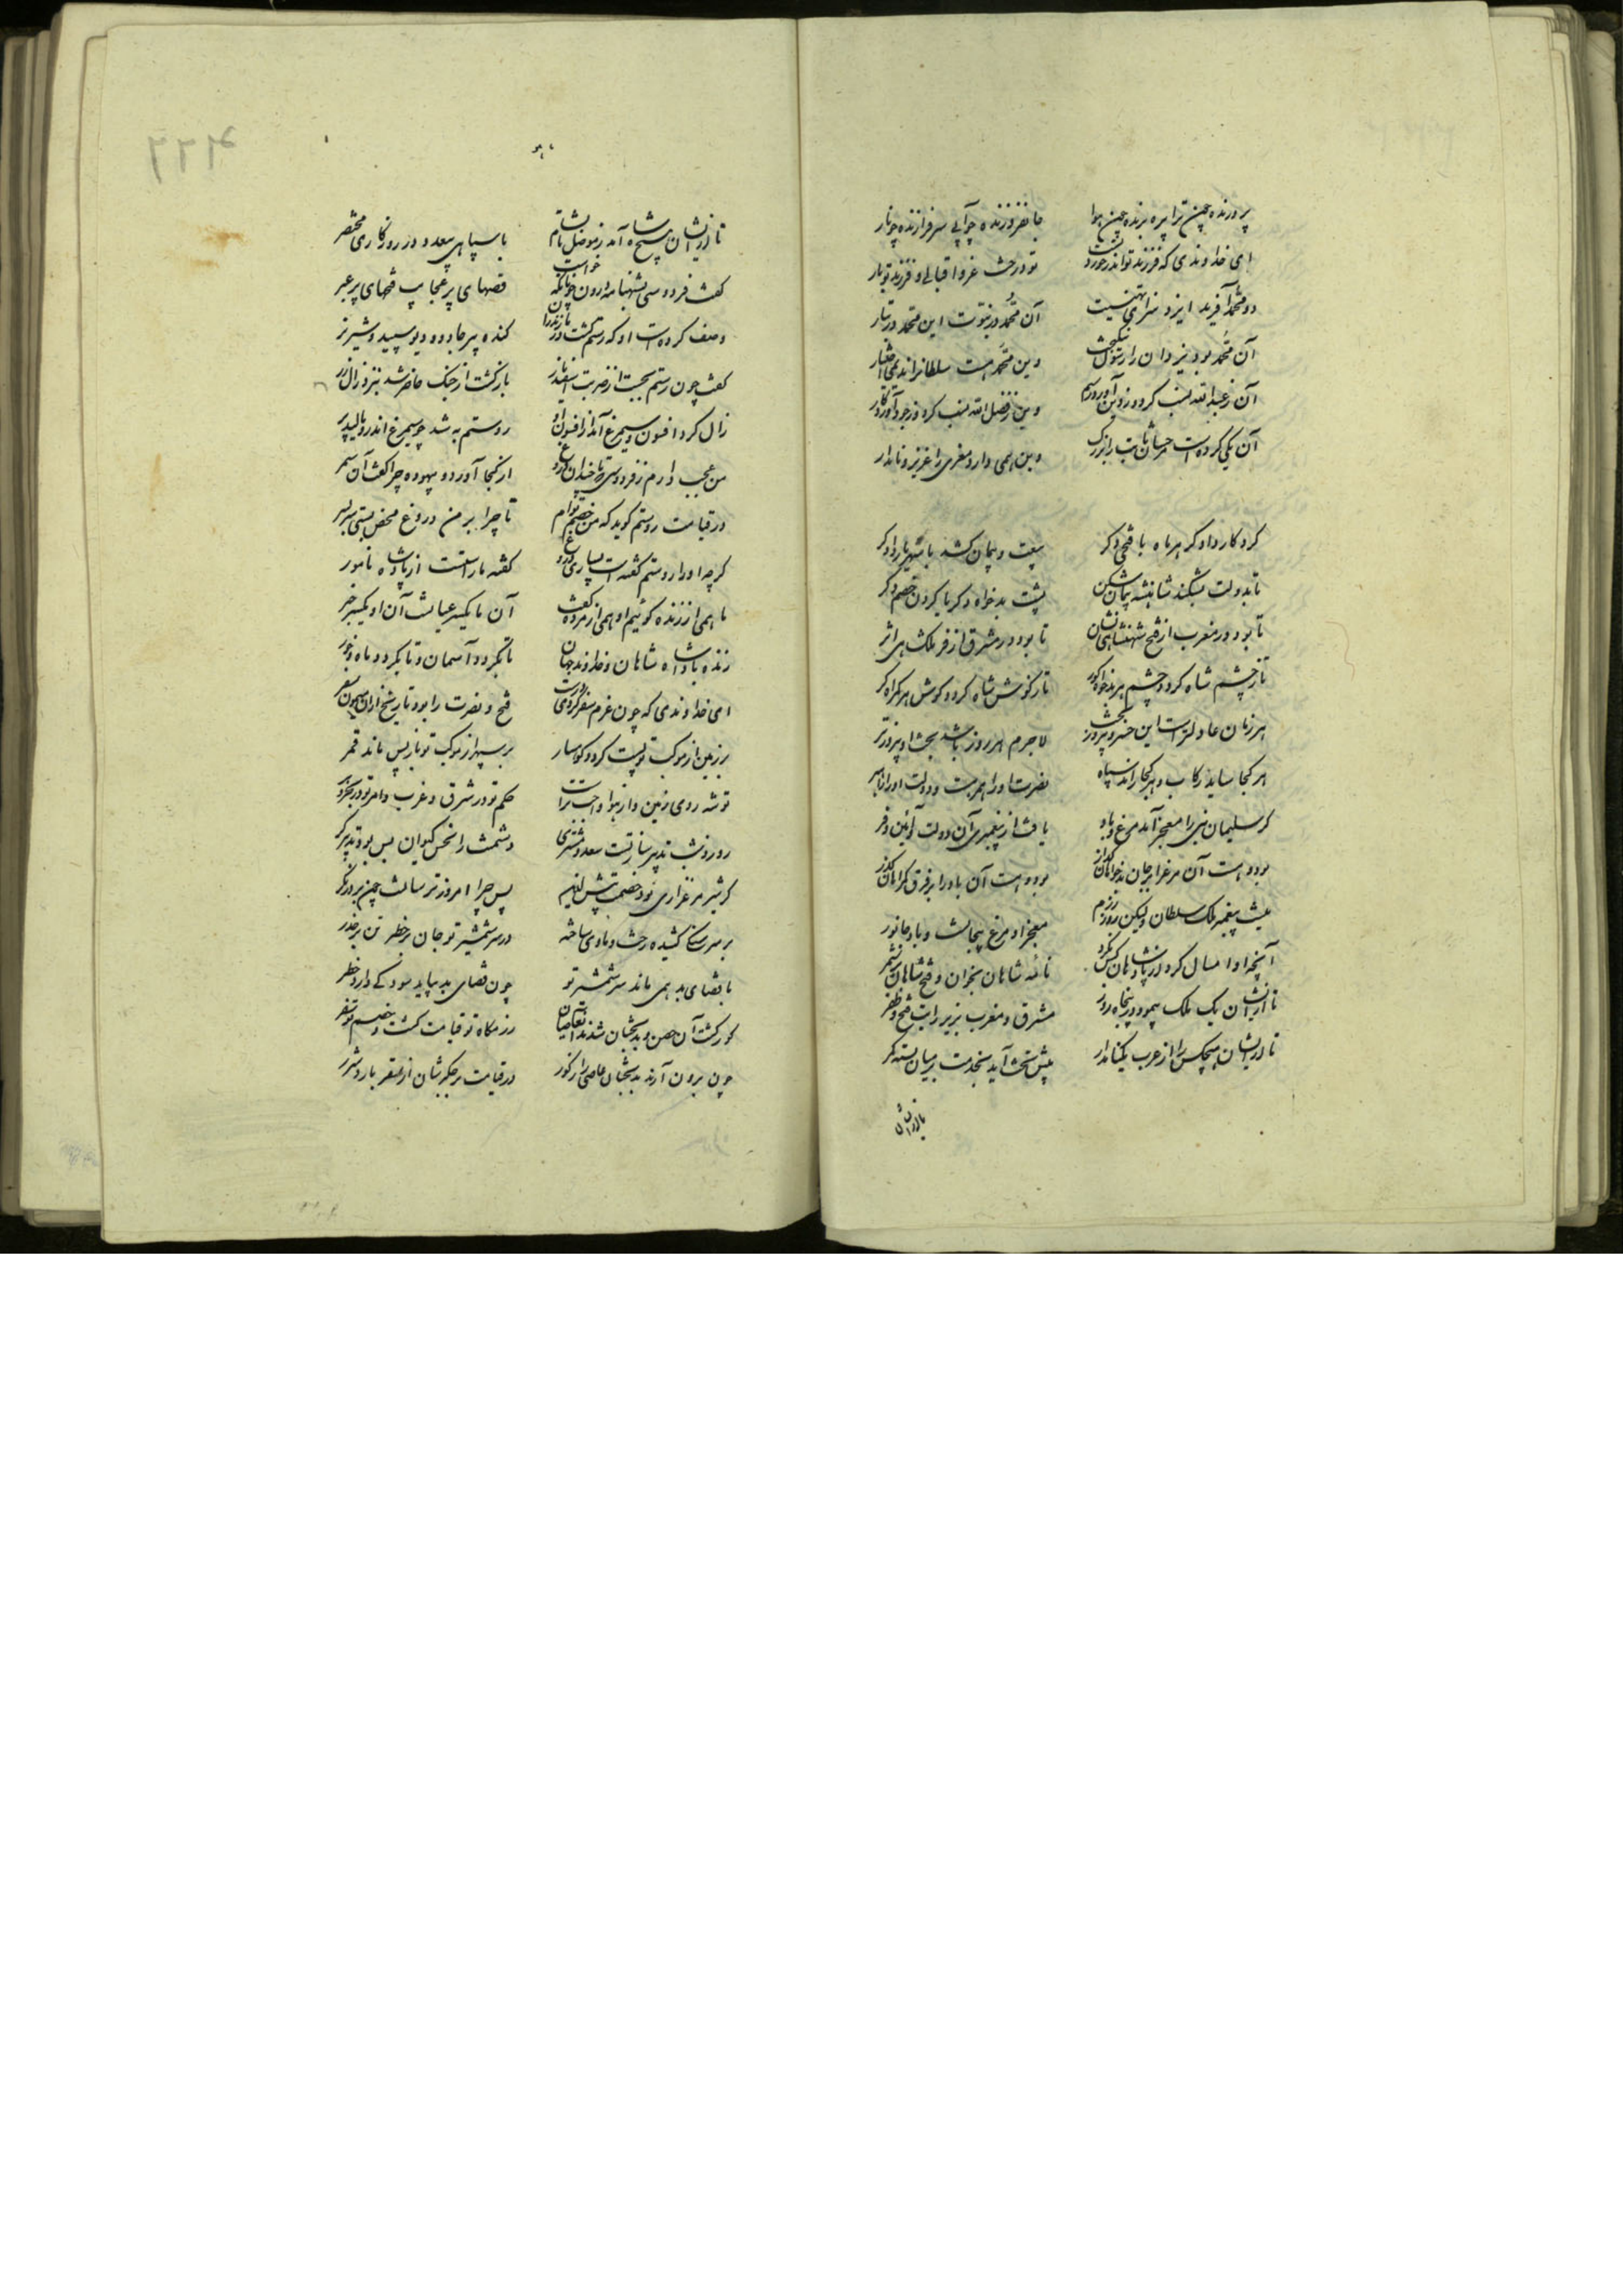 پرورنده چمن ترا پره برنده چمن هوا جانفروزنده چو آبی سرفرازنده چو نار
ای خداوندی که فرزند تو اندر خورد تست تو درخت عز و اقبالی و فرزند تو بار
دو محمد آفرید ایزد سزای تهنیت آن محمد در نبوت این محمد در تبار
آن محمد بود یزدان را رسول نیکبخت وین محمد هست سلطانرا ندیم اختیار
آن ز عبدالله نسب کرد و ز دین آورد رسم وین ز فضل الله نسب کرد و ز جود آورد کار
آن یکی کرده است حسان ثابت را بزرگ وین همی دارد معزی را عزیز و نامدار
کردگار دادگر هر ماه با فتحی دگر بیعت و پیمان کند با شهریار دادگر
تا بدولت بشکند شاهنشه پیمان شکن پشت بدخواه دگر با گردن خصم دگر
تا بود در مغرب از فتح شهنشاهی نشان تا بود در مشرق از فر ملکشاهی اثر
تا ز چشم شاه گردد چشم هر بدخواه کور تا ز گوش شاه گردد گوش هر گمراه کر
هر زمان عادلتر است این خسرو پیروز بخت لاجرم هر روز باشد بخت او پیروزتر
هر کجا ساید رکاب و هر کجا راند سپاه نصرت او را همبر است و دولت او را راهبر
گر سلیمان نبی را معجز آمد مرغ و باد یافت از پیغمبری آن دولت و آئین و فر
بوده است آن مرغ را بر جان بدخواهان گذار بوده است آن باد را بر فرق گمراهان گذر
نیست پیغمبر ملک سلطان ولیکن روز رزم معجز او مرغ بیجانست و باد جانور
آنچه او امسال کرد از پادشاهان کس نکرد نامه شاهان بخوان و فتح شاهان بر شمر
تا از ایشان یک ملک پیمود در پنجاه روز مشرق و مغرب بزیر رایت فتح و ظفر
تا از ایشان هیچکس را از عرب یکنامدار پیش تخت آید بخدمت بر میان بسته کمر
تا از ایشان
تا از ایشان پادشاه آمد ز موصل تا بشام با سپاهی بیعدد در روزگاری مختصر
گفت فردوسی بشهنامه درون چونانکه خواست قصهای پر عجایب فتحهای پر عبر
وصف کرده است او که رستم کشت در مازندران گنده پیر جادو و دیو سپید و شیر نر
گفت چون رستم بجست از ضربت اسفندیار بازگشت از جنگ حاضر شد بنزد زال زر
زال کرد افسون و سیمرغ آمد از افسون او روستم به شد چو سیمرغ اندرو مالید پر
من عجب دارم ز فردوسی که تا چندان دروغ از کجا آورد و بیهوده چرا گفت آن سمر
در قیامت روستم گوید که من خصم توام تا چرا بر من دروغ محض بستی سربسر
گرچه او از روستم گفته است بسیاری دروغ گفته ما راستست از پادشاه نامور
ما همی از زنده گوئیم او همی از مرده گفت آن ما یکسر عیانست آن او یکسر خبر
زنده بادا شاه شاهان و خداوند جهان تا بگردد آسمان و تا بگردد ماه و خور
ای خداوندی که چون عزم سفر کردی درست فتح و نصرت را بود تاریخ از آن میمون سفر
بر زمین از موکب تو پست گردد کوهسار بر سپهر از موکب تو باز پس ماند قمر
تو شه روی زمین و از هوا واجب تراست حکم تو در شرق و غرب و امر تو در بحر و بر
روز و شب تدبیر ساز تست سعد مشتری دشمنت را نحس کیوان بس بود تدبیرگر
گر شیر مرغزاری بود خصمت پیش ازین پس چرا امروز ترسانست چون
بر سر سنان کشیده رخت و مأوی ساخته در سر شمشیر تو جان بر خطر تن بر حذر
با قضای بد همی ماند سر شمشیر تو چون قضای بد بیاید سود کی دارد حذر
گور گشت آن حصن و بدبختان شدند آن عاصیان رزمگاه تو قیامت گشت و خصم تو سقر
چون برون آرند بدبختان عاصی را ز گور در قیامت بر جگرشان از سقر بارد شرر